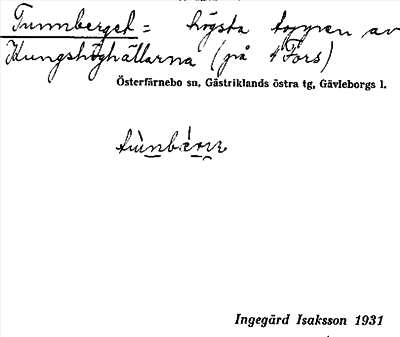 Tunnberget = högsta toppen av
Kungshöghällarna (på t Fors)
Österfärnebo sn, Gästriklands östra tg, Gävleborgs l.
Ingegärd Isaksson 1931